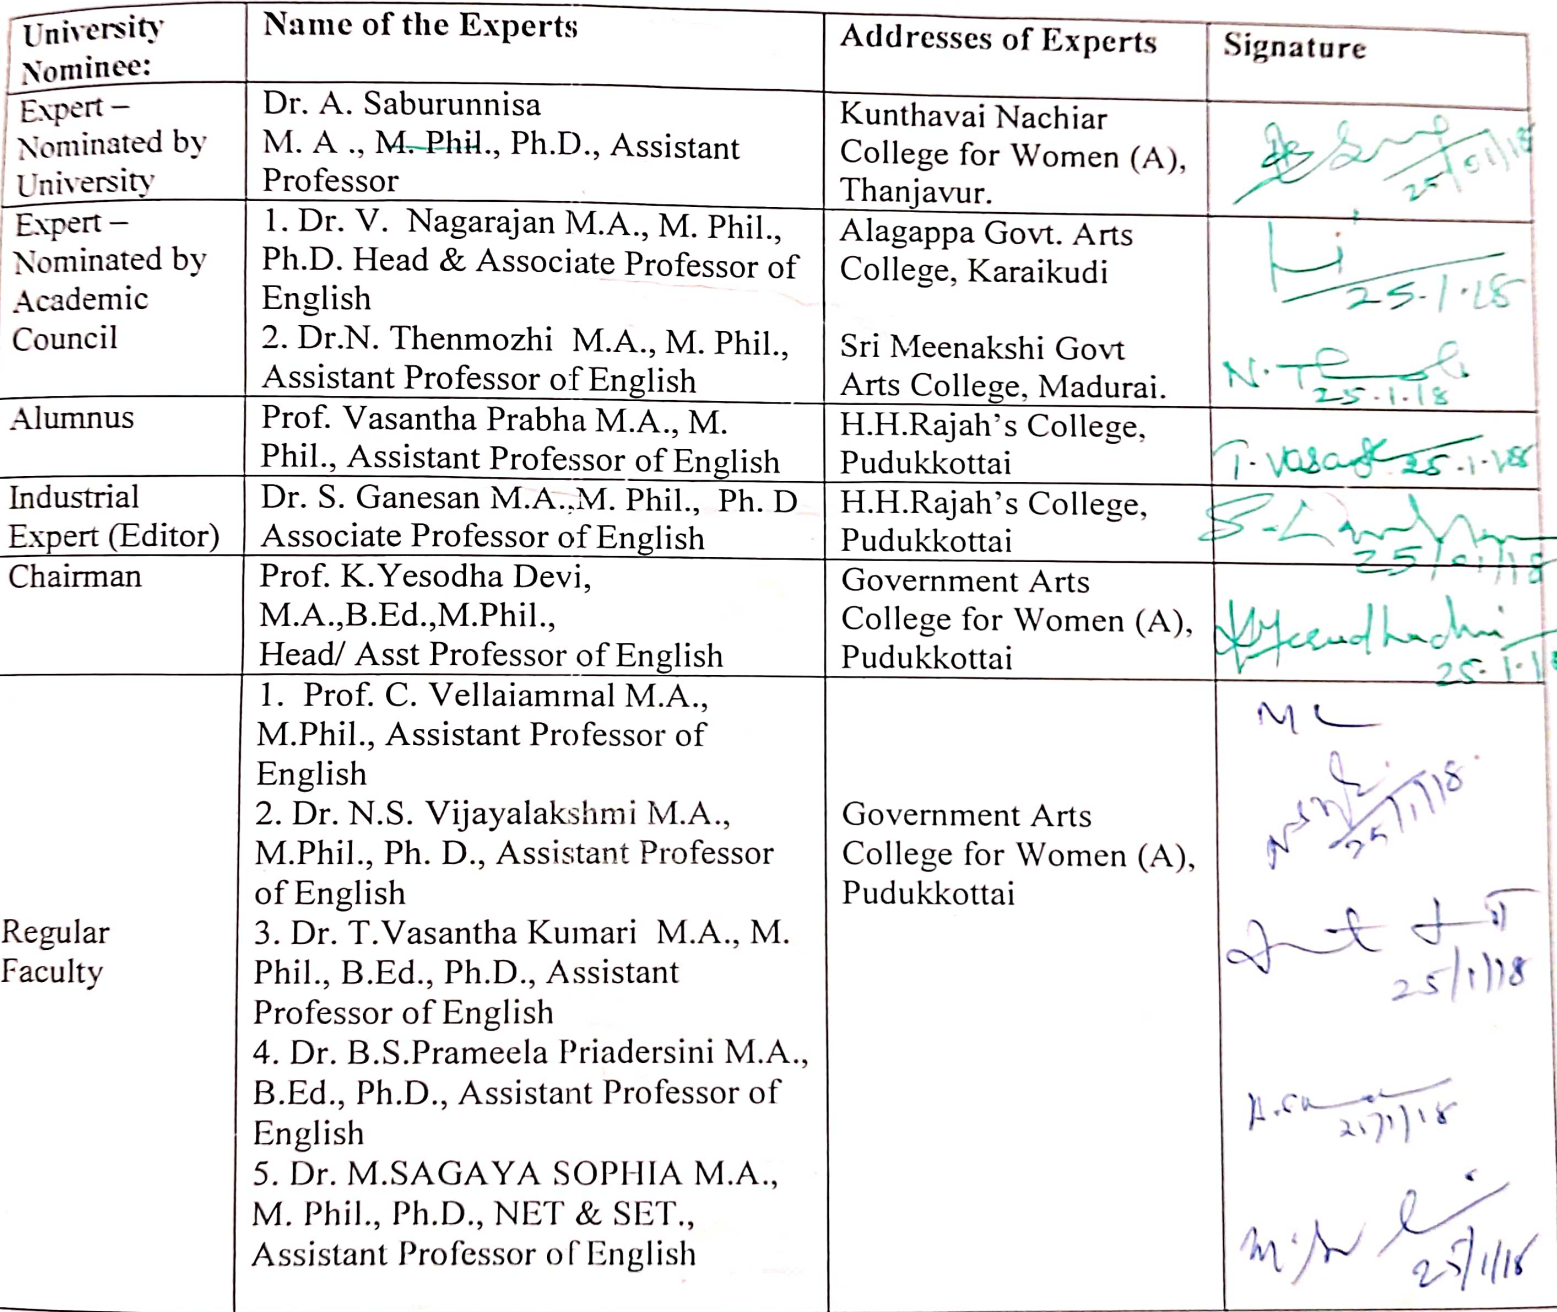 University Nominee:
Name of the Experts
Addresses of Experts
Signature
Expert –
Nominated by
University
Dr. A. Saburunnisa
M. A ., M. Phil., Ph.D., Assistant
Professor
Kunthavai Nachiar
College for Women (A),
Thanjavur.
25/01/18
Expert –
Nominated by
Academic
Council
1. Dr. V. Nagarajan M.A., M. Phil.,
Ph.D. Head & Associate Professor of
English
2. Dr.N. Thenmozhi M.A., M. Phil.,
Assistant Professor of English
Alagappa Govt. Arts
College, Karaikudi
Sri Meenakshi Govt
Arts College, Madurai.
25.1.18
25.1.18
Alumnus
Prof. Vasantha Prabha M.A., M.
Phil., Assistant Professor of English
H.H.Rajah's College,
Pudukkottai
25.1.18
Industrial
Expert (Editor)
Dr. S. Ganesan M.A.,M. Phil., Ph. D
Associate Professor of English
H.H.Rajah's College,
Pudukkottai
25/01/18
Chairman
Prof. K.Yesodha Devi,
M.A.,B.Ed.,M.Phil.,
Head/ Asst Professor of English
Government Arts
College for Women (A),
Pudukkottai
25.1.18
Regular
Faculty
1. Prof. C. Vellaiammal M.A.,
M.Phil., Assistant Professor of
English
2. Dr. N.S. Vijayalakshmi M.A.,
M.Phil., Ph. D., Assistant Professor
of English
3. Dr. T.Vasantha Kumari M.A., M.
Phil., B.Ed., Ph.D., Assistant
Professor of English
4. Dr. B.S.Prameela Priadersini M.A.,
B.Ed., Ph.D., Assistant Professor of
English
5. Dr. M.SAGAYA SOPHIA M.A.,
M. Phil., Ph.D., NET & SET.,
Assistant Professor of English
Government Arts
College for Women (A),
Pudukkottai
25/1/18
25/1/18
25/1/18